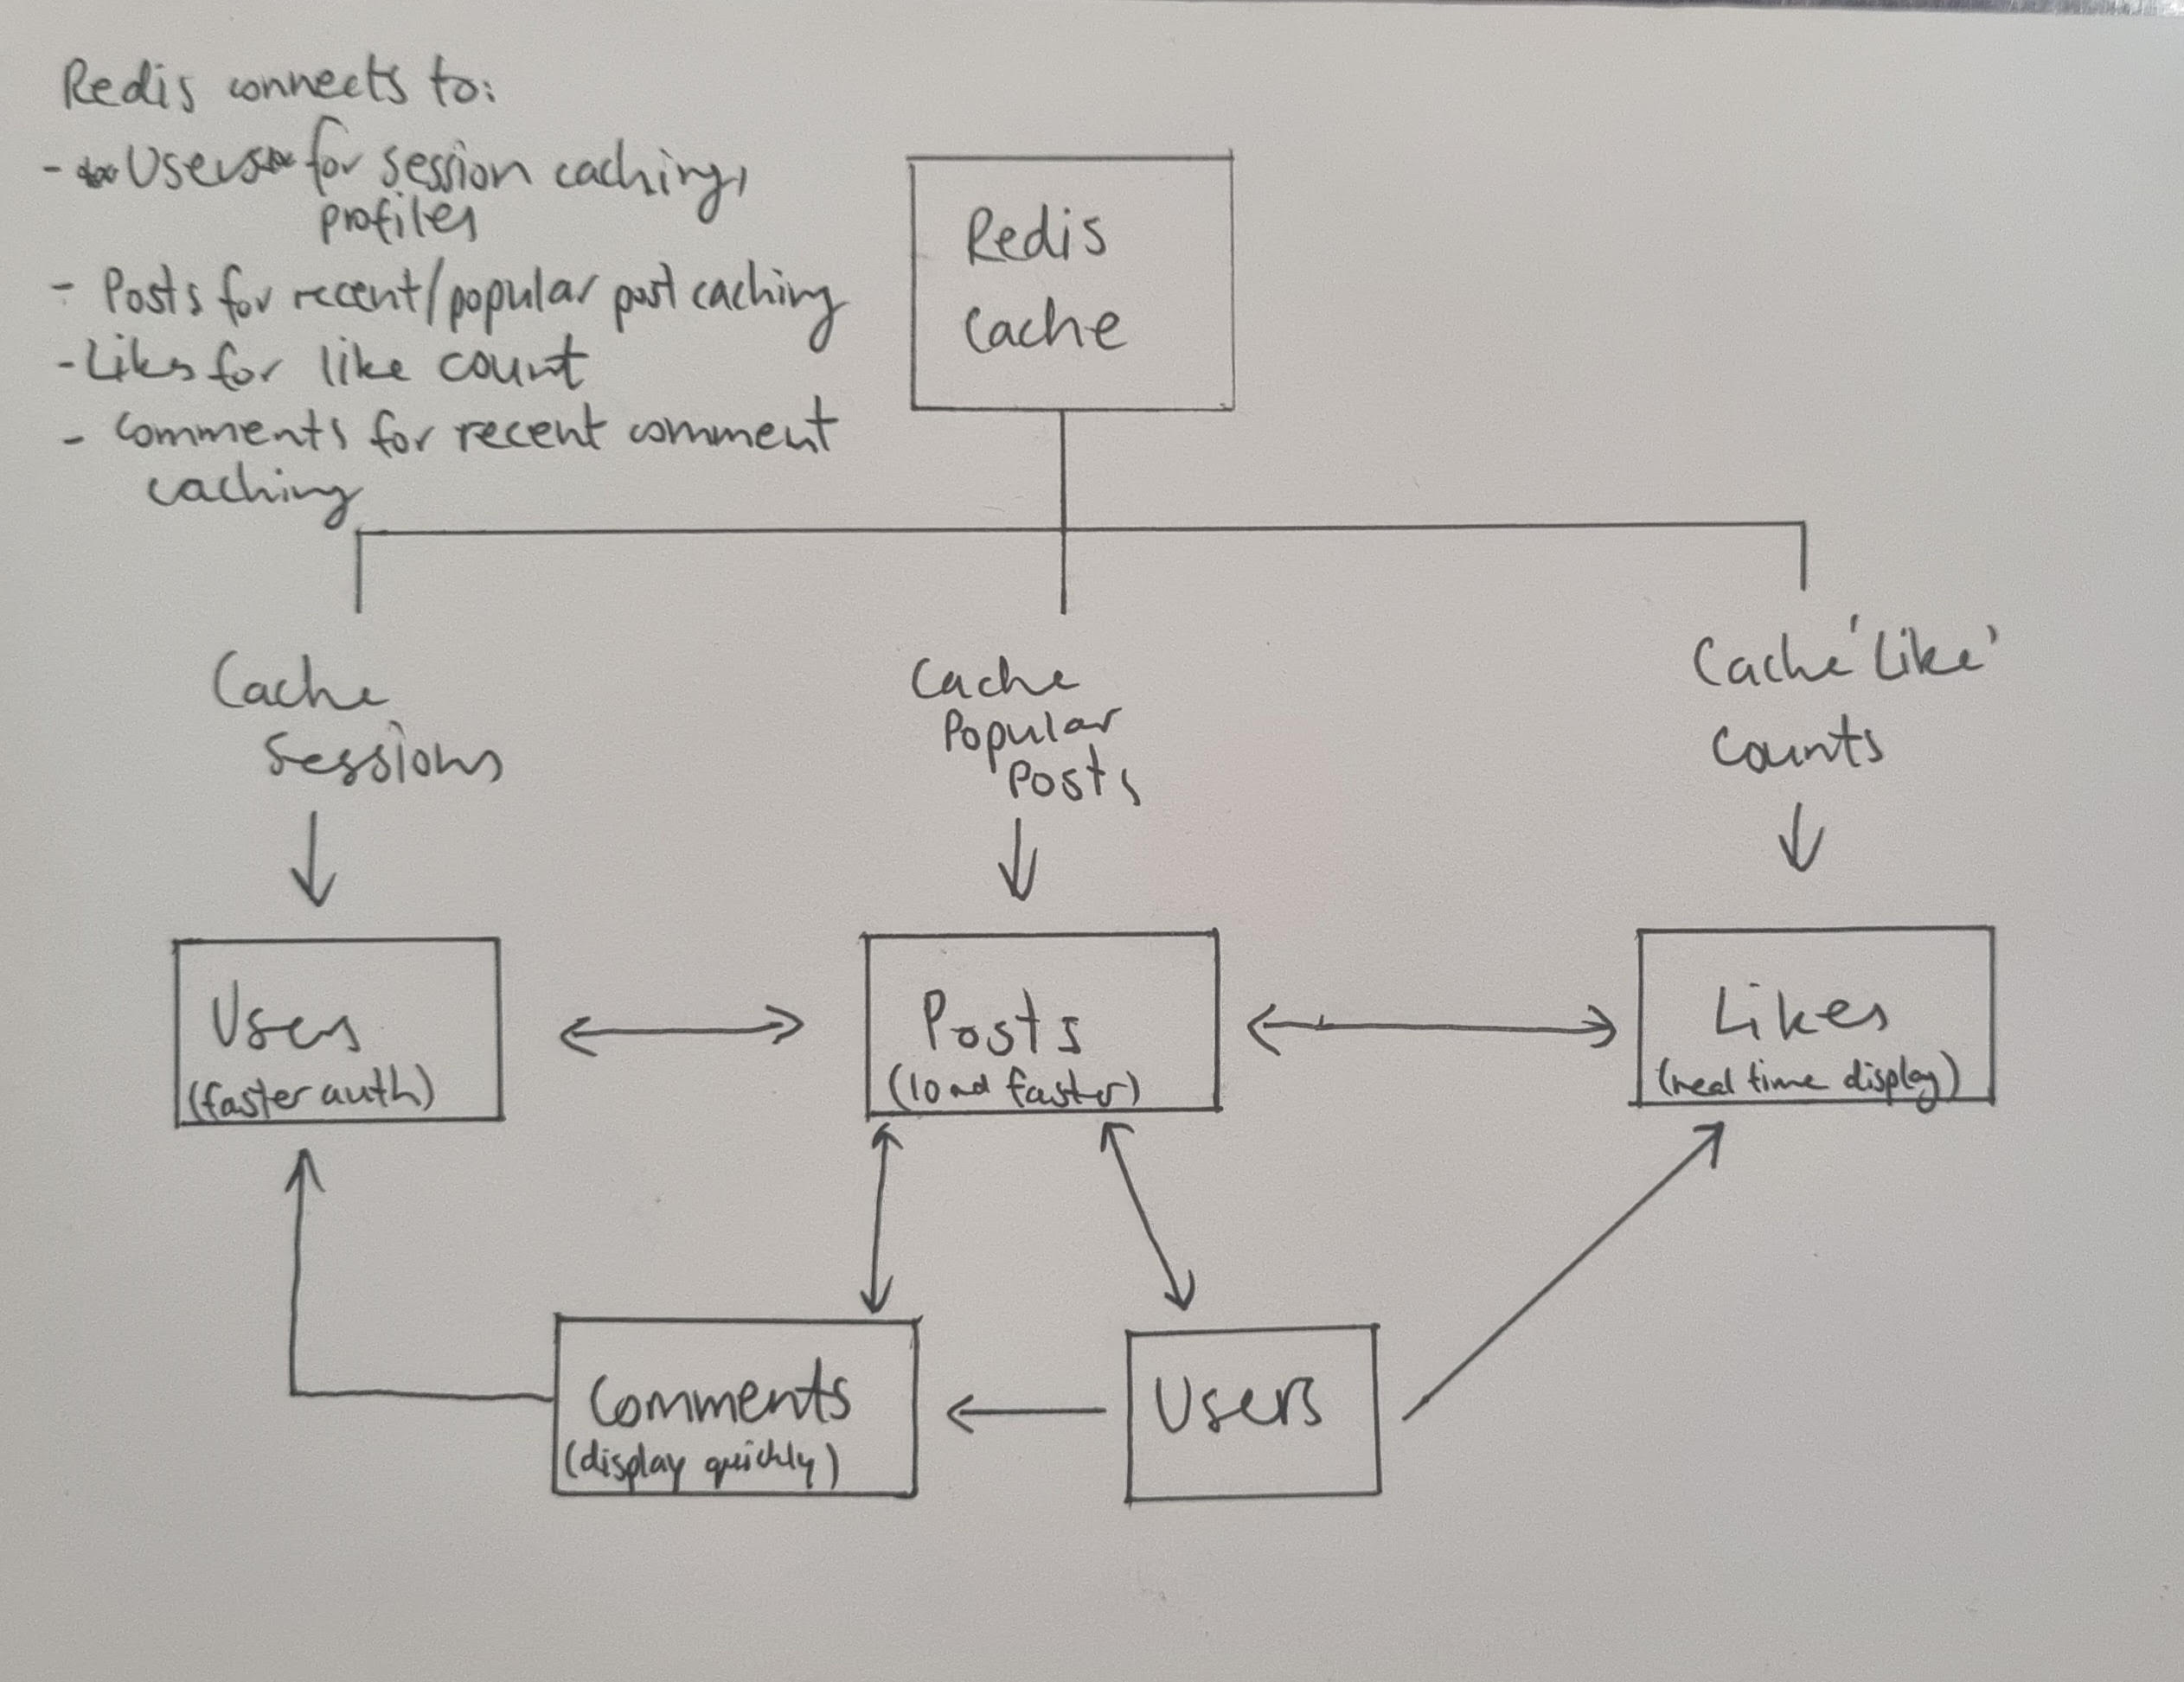 Redis connects to:
- Users for session caching,
profiles
- Posts for recent/popular post caching
- Likes for like count
- Comments for recent comment
caching
Redis
Cache
Cache
Sessions
Cache
Popular
Posts
Cache 'Like'
Counts
Users
(faster auth)
Posts
(load faster)
Likes
(real time display)
Comments
(display quickly)
Users